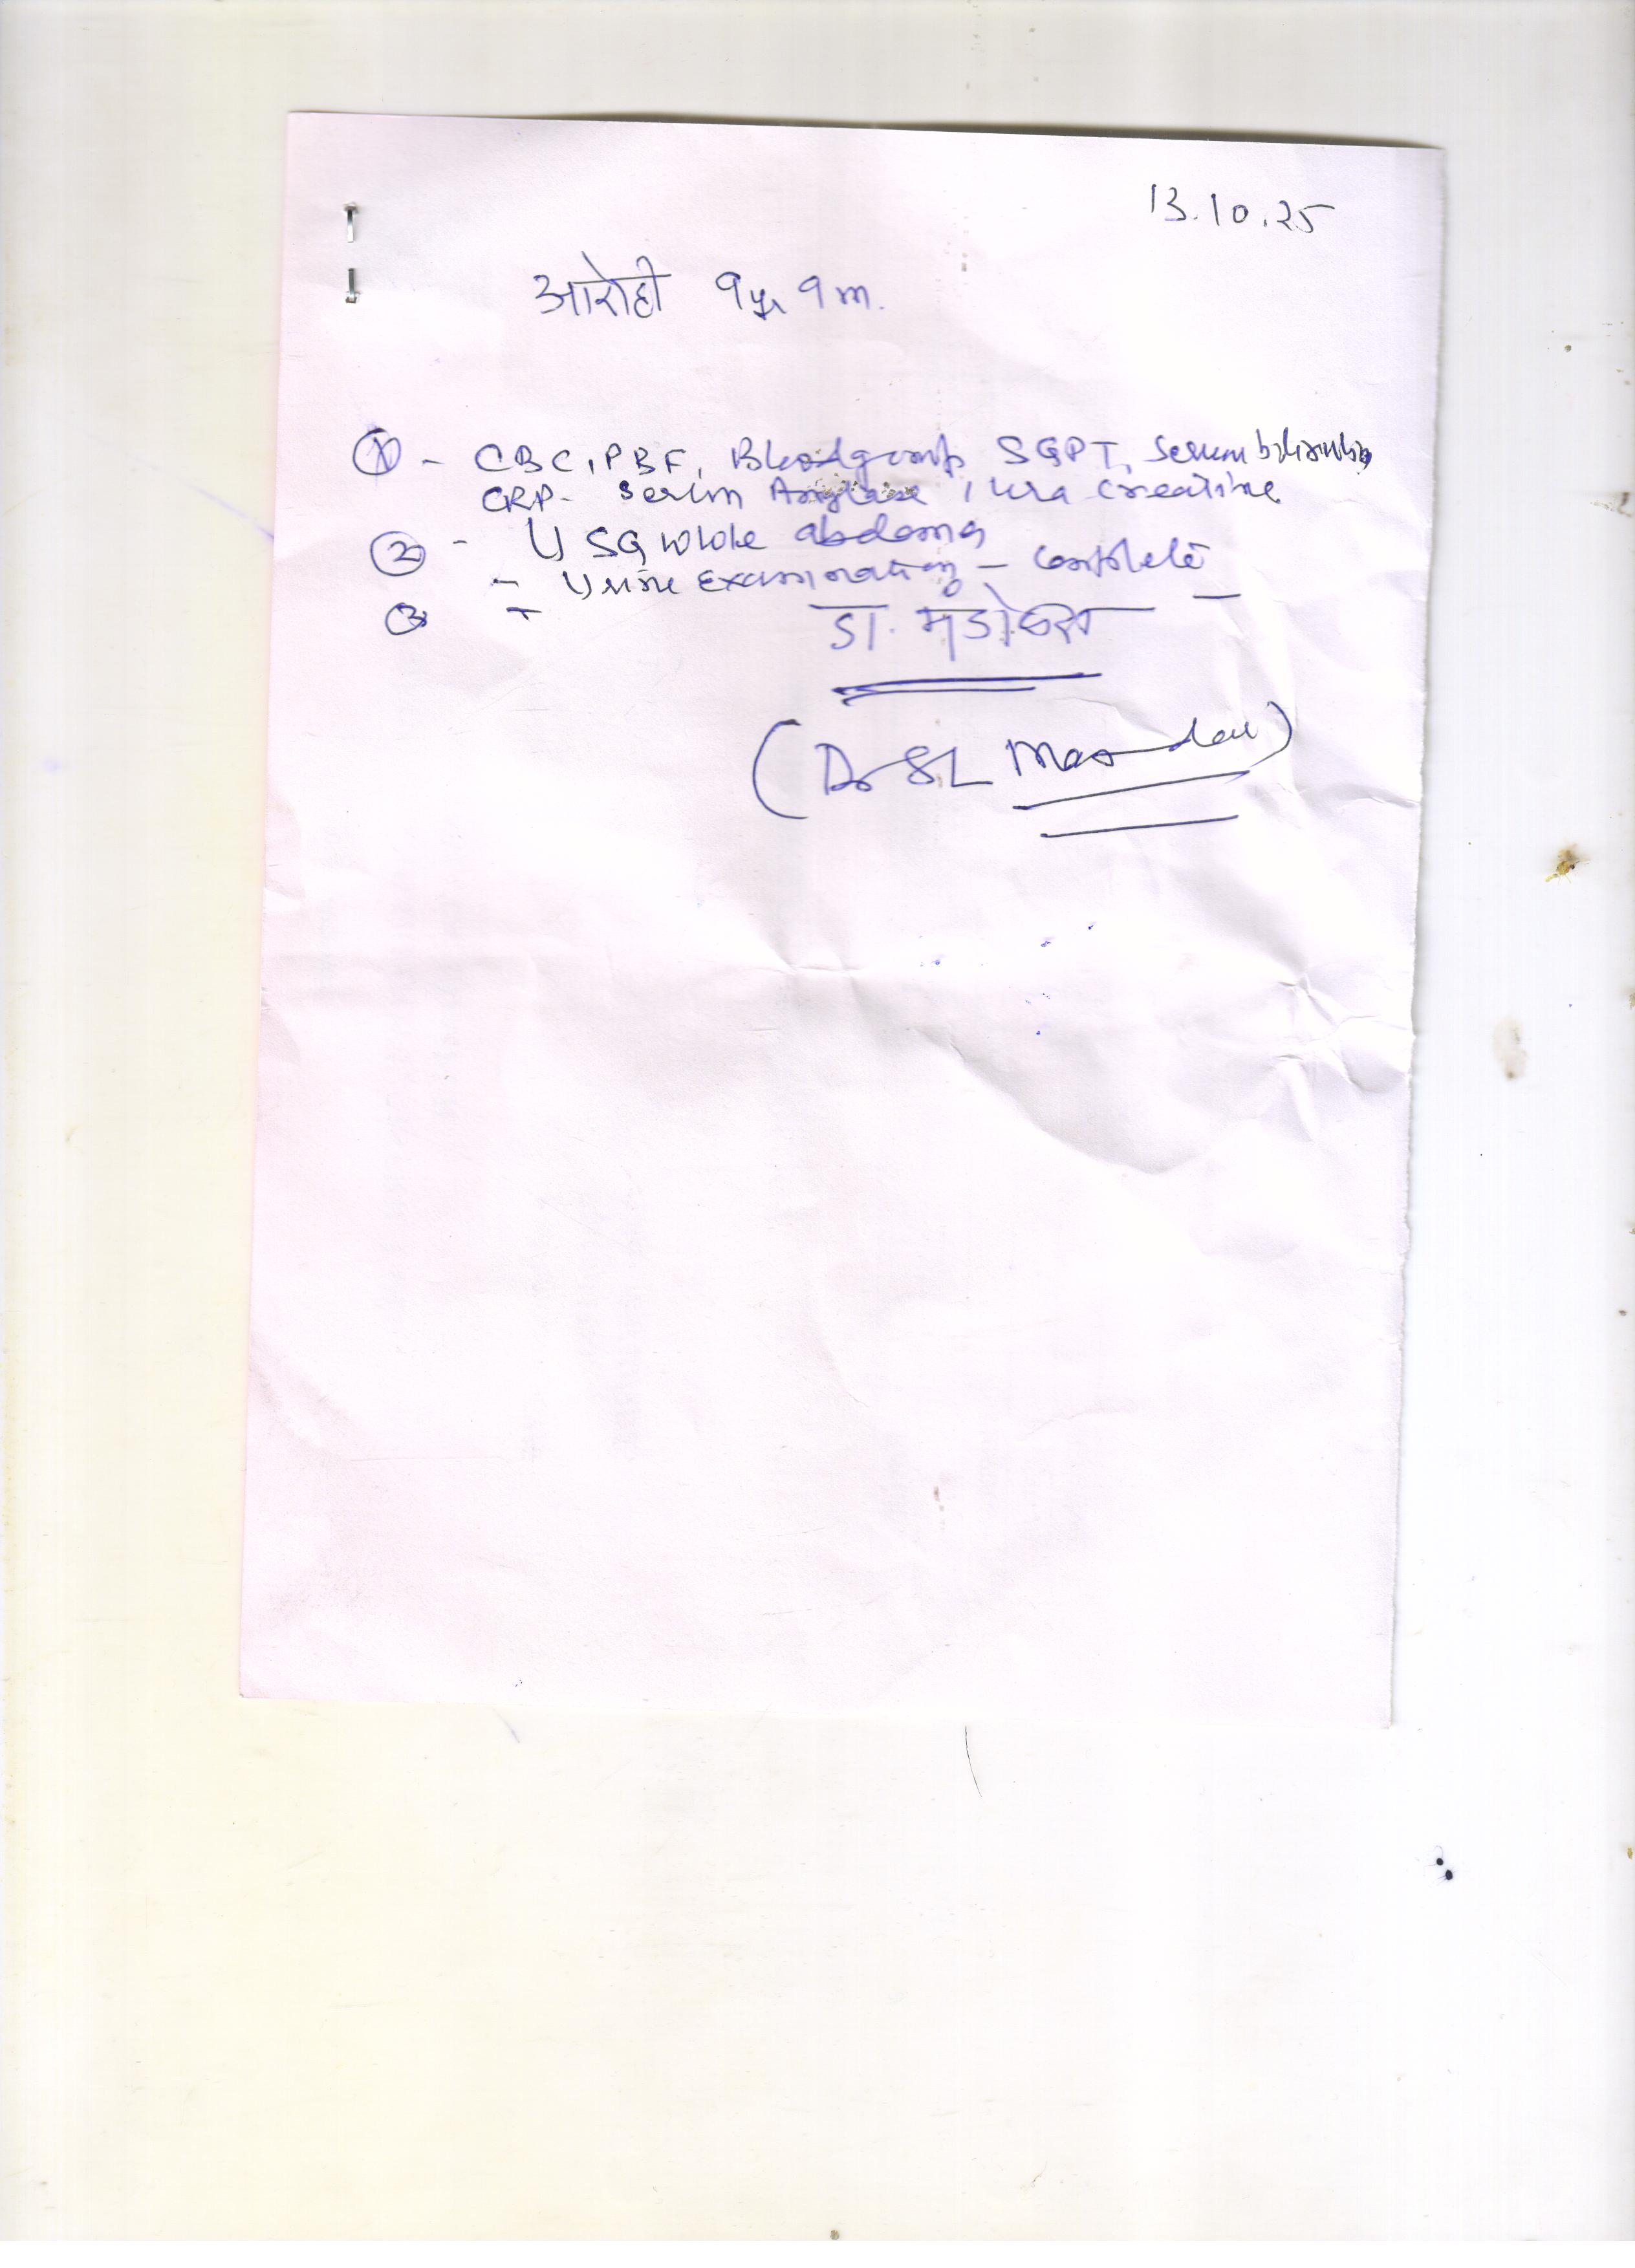 13.10.25
आरोही 9 yr 9 m.
① - CBC, PBF, Bloodgroup SGPT, Serum bilirubin
CRP - Serum Amylase, Urea Creatine
② - USG whole abdomen
- Urine Examination - complete
③ -
डा.
(Dr SL